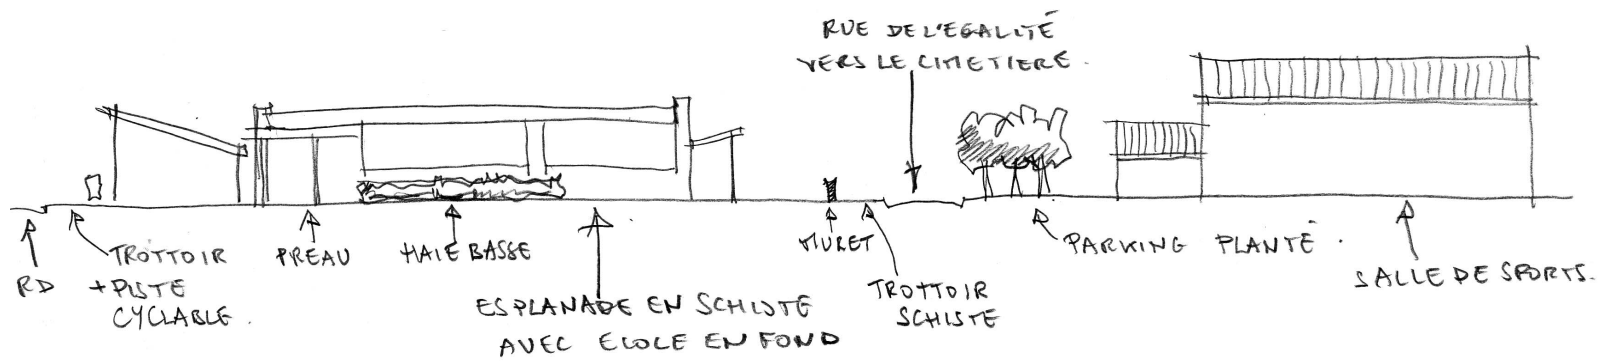 RUE DE L'EGALITÉ
VERS LE CIMETIERE.
RD
TROTTOIR
+ PISTE
CYCLABLE.
PREAU
HAIE BASSE
ESPLANADE EN SCHISTE
AVEC ECOLE EN FOND
MURET
TROTTOIR
SCHISTE
PARKING PLANTÉ.
SALLE DE SPORTS.